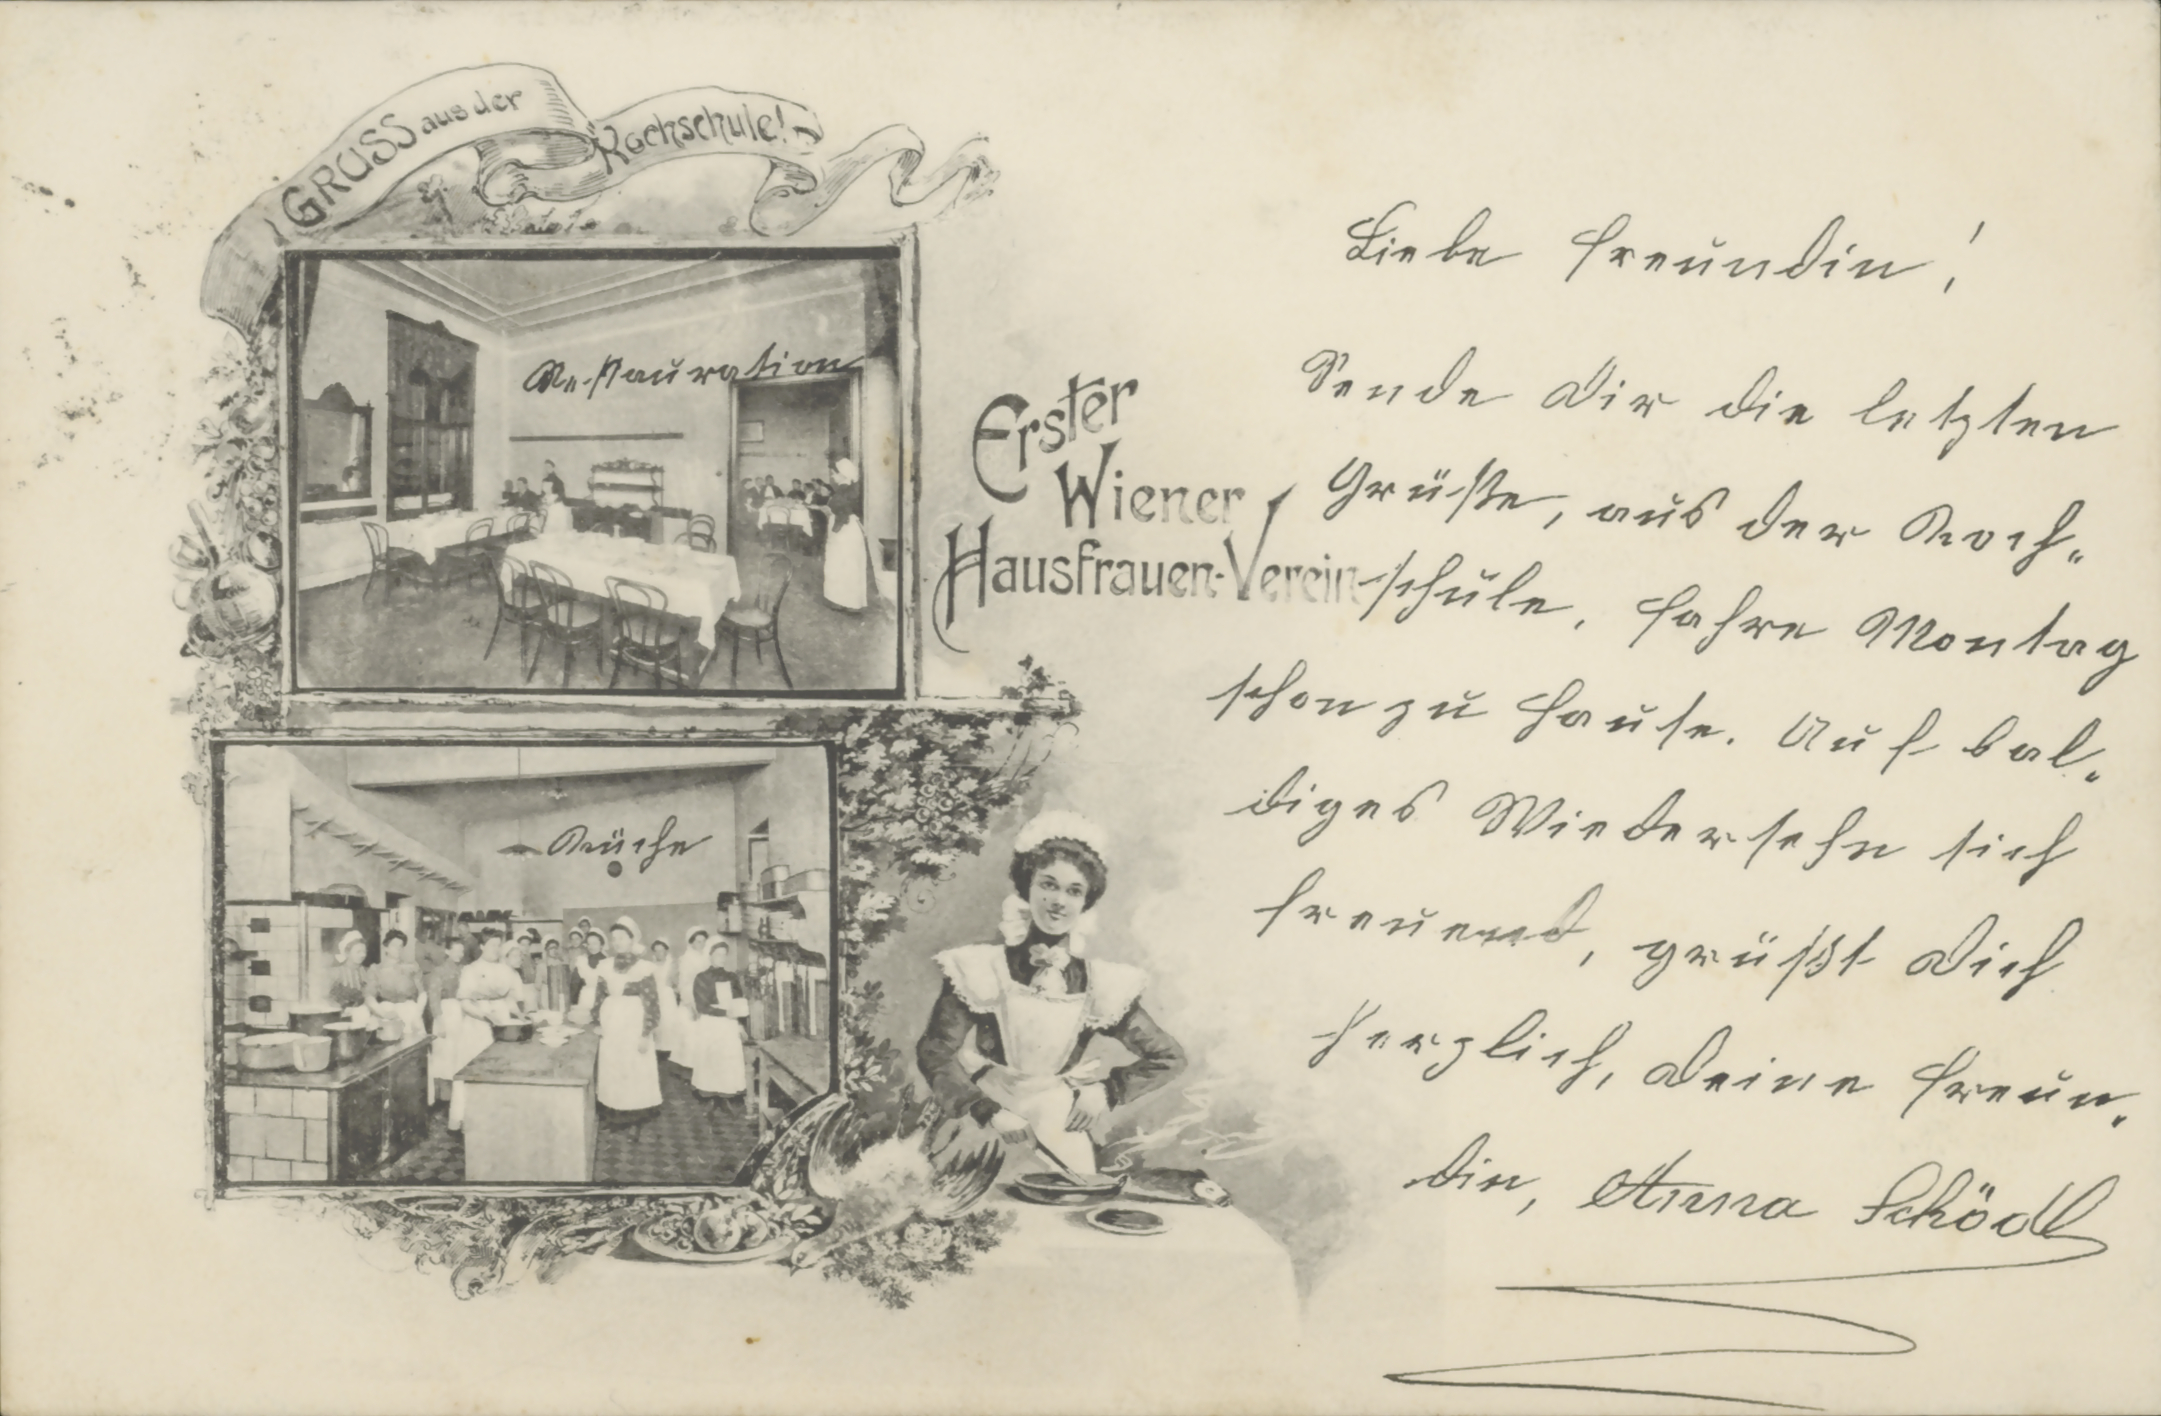 GRUSS aus der Kochschule!
Restauration
Erster
Wiener
Hausfrauen-Verein
Küche
Liebe Freundin!
Sende Dir die letzten
Grüße, aus der Koch„
schule, fahre Montag
schon zu Hause. Auf bal„
diges Wiedersehn sich
freuend, grüßt Dich
herzlich, Deine Freun„
din, Anna Schödl